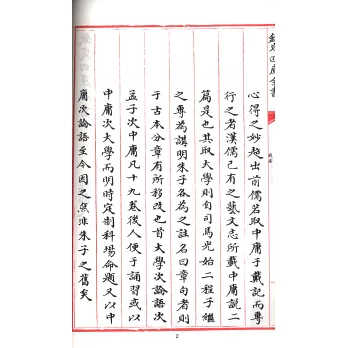 欽定四庫全書
提要
心得之妙超出前儒若取中庸于戴記而專
行之者漢儒已有之藝文志所載中庸說二
篇是也其取大學則自司馬光始二程子繼
之專為講明朱子各為之註名曰章句者則
于古本分章有所移改也首大學次論語次
孟子次中庸凡十九卷後人便于誦習或以
中庸次大學而明時定制科場命題又以中
庸次論語至今因之然非朱子之舊矣
2